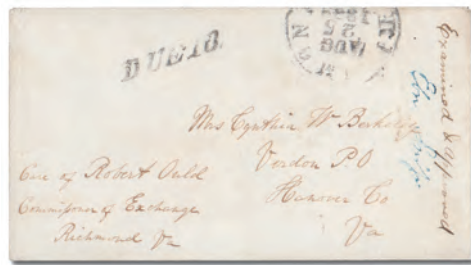 DUE 10.
AUG
25
Examined & approved
Mrs Cynthia W Berkeley
Verdon P.O
Hanover Co
Va
Care of Robert Ould
Commissioner of Exchange
Richmond Va